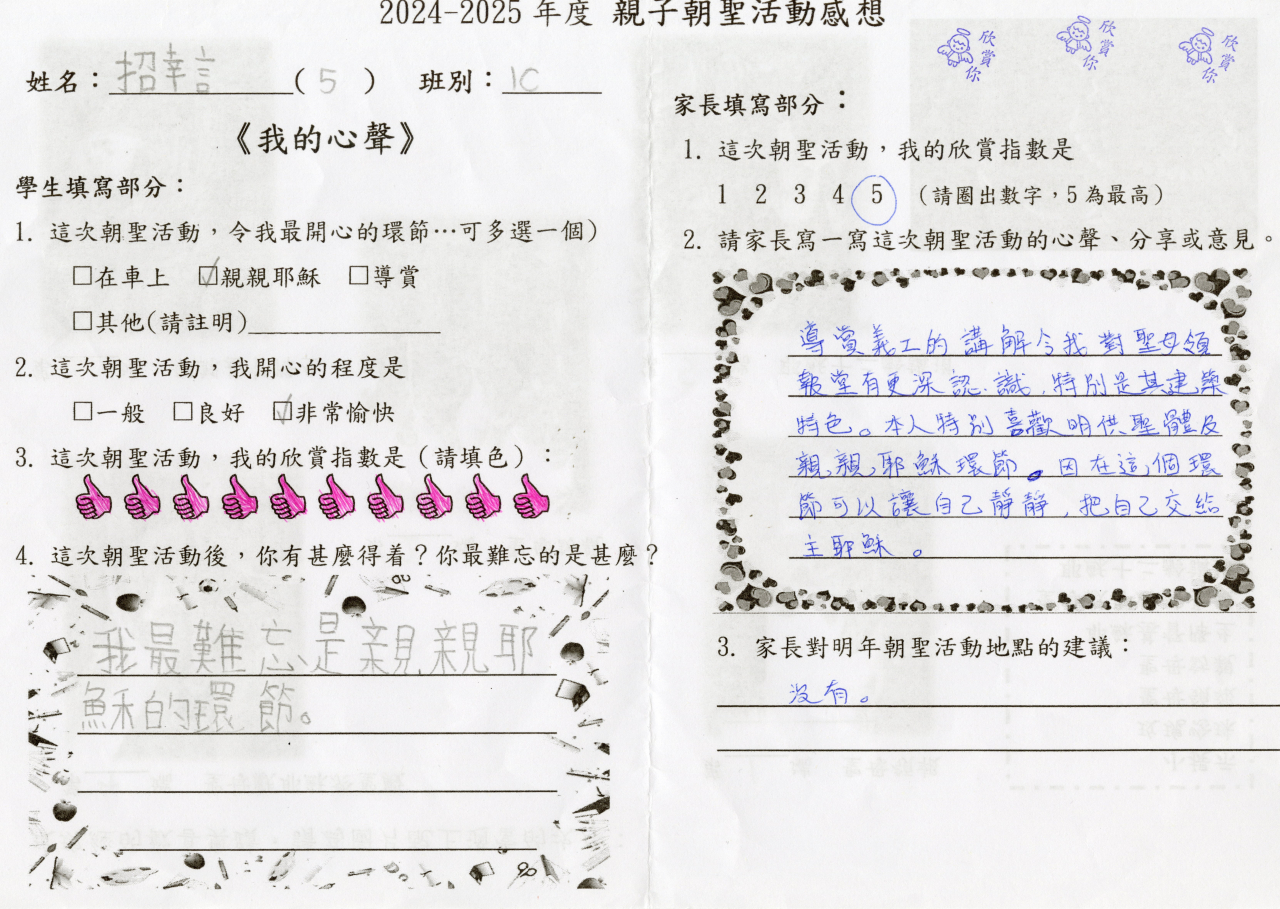 2024-2025 年度 親子朝聖活動感想
姓名：招幸言 (5) 班別：1C
《我的心聲》
學生填寫部分：
1. 這次朝聖活動，令我最開心的環節…可多選一個)
□在車上 ☑親親耶穌 □導賞
□其他(請註明)
2. 這次朝聖活動，我開心的程度是
□一般 □良好 ☑非常愉快
3. 這次朝聖活動，我的欣賞指數是（請填色）：
4. 這次朝聖活動後，你有甚麼得着？你最難忘的是甚麼？
我最難忘是親親耶
穌的環節。
欣賞你
欣賞你
欣賞你
家長填寫部分：
1. 這次朝聖活動，我的欣賞指數是
1 2 3 4 5 （請圈出數字，5為最高）
2. 請家長寫一寫這次朝聖活動的心聲、分享或意見。
導賞義工的講解令我對聖母領
報堂有更深認識，特別是其建築
特色。本人特別喜歡明供聖體及
親親耶穌環節。因在這個環
節可以讓自己靜靜，把自己交給
主耶穌。
3. 家長對明年朝聖活動地點的建議：
沒有。